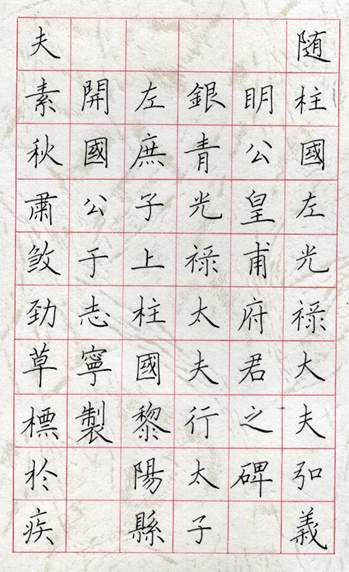 随柱國左光祿大夫弘義
明公皇甫府君之碑
銀青光祿太夫行太子
左庶子上柱國黎陽縣
開國公于志寧製
夫素秋肅煞勁草標於疾